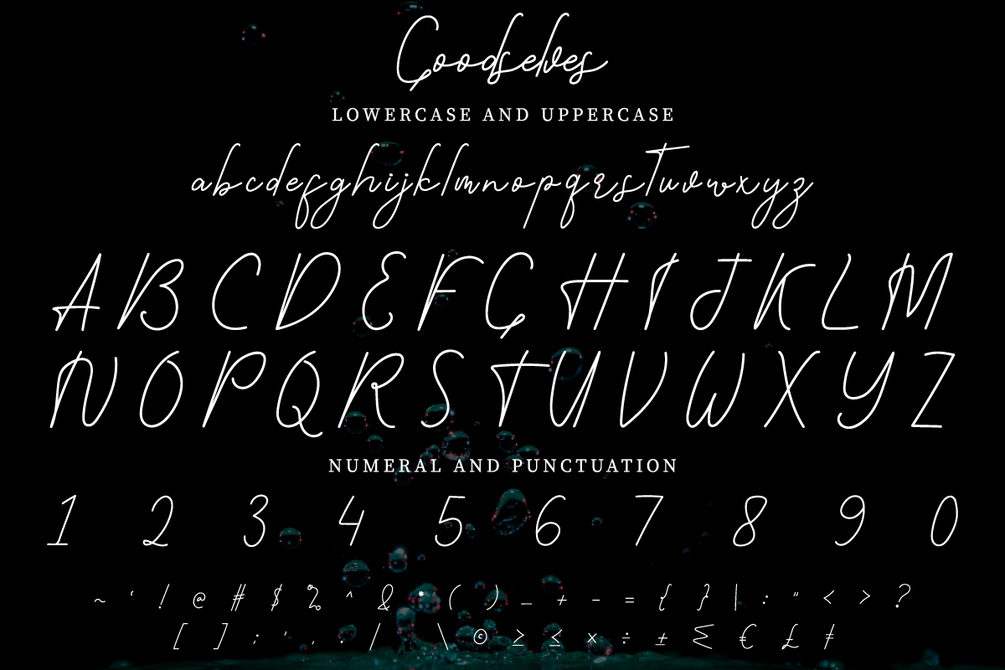 Goodselves
LOWERCASE AND UPPERCASE
abcdefghijklmnopqrstuvwxyz
A B C D E F G H I J K L M
N O P Q R S T U V W X Y Z
NUMERAL AND PUNCTUATION
1 2 3 4 5 6 7 8 9 0
~ ' ! @ # $ % ^ & * ( ) _ + - = { } | : " < > ?
[ ] ; ' , . / \ © ≥ ≤ × ÷ ± Σ € £ ≠